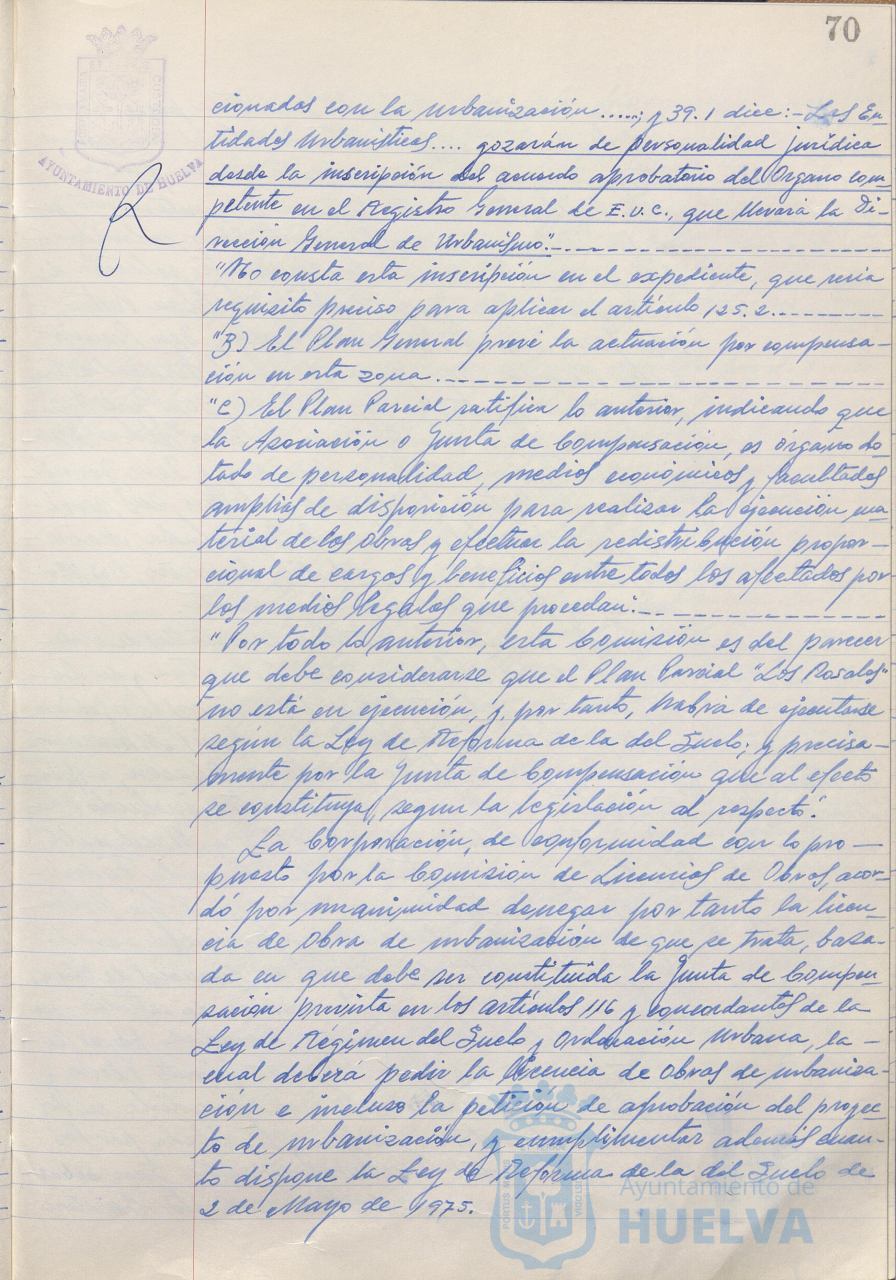 70
AYUNTAMIENTO DE HUELVA
cionados con la urbanización.....; y 39.1 dice:- Las En-
tidades Urbanísticas.... gozarán de personalidad jurídica
desde la inscripción del acuerdo aprobatorio del Organo com-
petente en el Registro General de E.U.C., que llevará la Di-
rección General de Urbanismo".-
"No consta esta inscripción en el expediente, que sería
requisito preciso para aplicar el artículo 125.2.-
"B) El Plan General prevé la actuación por compensa-
ción en esta zona.-
"C) El Plan Parcial ratifica lo anterior, indicando que
la Asociación o Junta de Compensación, es órgano do-
tado de personalidad, medios económicos y facultades
amplias de disposición para realizar la ejecución ma-
terial de las obras y efectuar la redistribución propor-
cional de cargas y beneficios entre todos los afectados por
los medios legales que procedan".-
"Por todo lo anterior, esta Comisión es del parecer
que debe considerarse que el Plan Parcial "Los Rosales"
no está en ejecución, y, por tanto, habrá de ejecutarse
según la Ley de Reforma de la del Suelo; y precisa-
mente por la Junta de Compensación que al efecto
se constituya, según la legislación al respecto".
La Corporación, de conformidad con lo pro-
puesto por la Comisión de Licencias de Obras, acor-
dó por unanimidad denegar por tanto la licen-
cia de obra de urbanización de que se trata, basa-
da en que debe ser constituida la Junta de Compen-
sación prevista en los artículos 116 y concordantes de la
Ley de Régimen del Suelo y Ordenación Urbana, la-
cual deberá pedir la licencia de obras de urbaniza-
ción e incluso la petición de aprobación del proyec-
to de urbanización, y cumplimentar además cuan-
to dispone la Ley de Reforma de la del Suelo de
2 de Mayo de 1975.
Ayuntamiento de
HUELVA